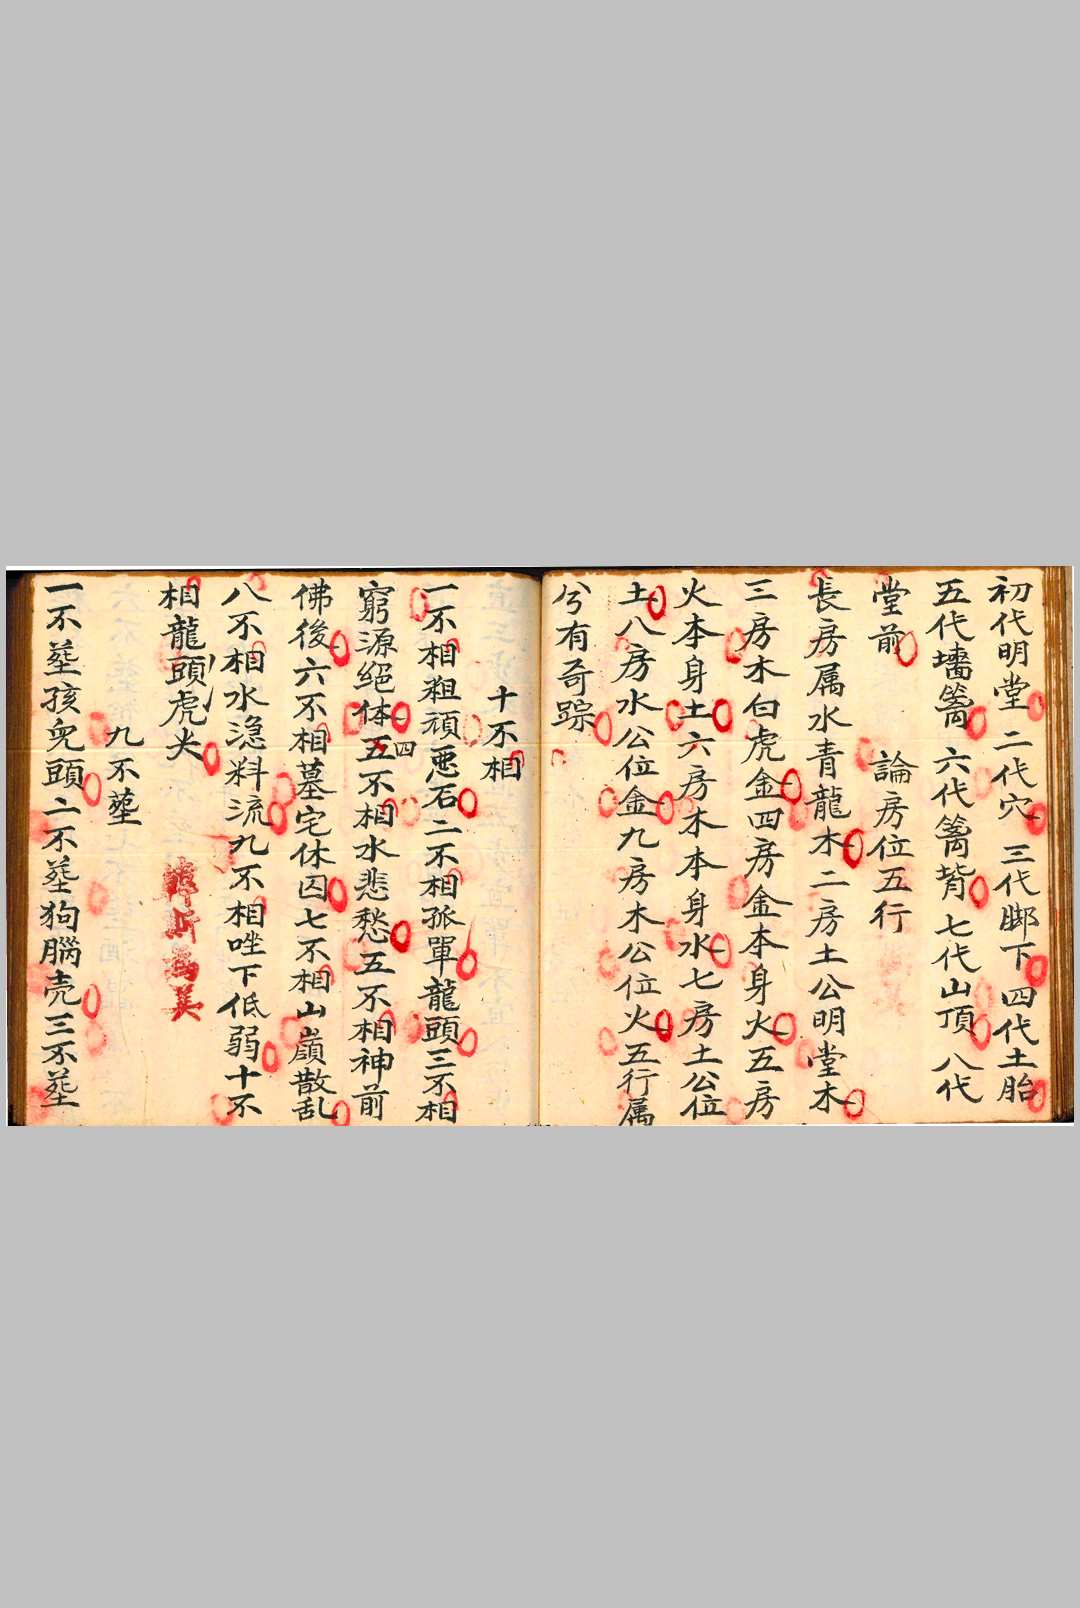 初代明堂 二代穴 三代脚下 四代土胎
五代墻 六代背 七代山頂 八代
堂前 論房位五行
長房属水青龍木二房土公明堂木
三房木白虎金四房金本身火五房
火本身土六房木本身水七房土公位
土八房水公位金九房木公位火五行属
兮有奇踪
十不相
一不相粗頑悪石二不相孤單龍頭三不相
窮源絕体五四不相水悲愁五不相神前
佛後六不相墓宅休囚七不相山嶺散乱
八不相水流九不相下低弱十不
相龍頭虎尖
九不塟
一不塟孩頭二不塟狗腦売三不塟